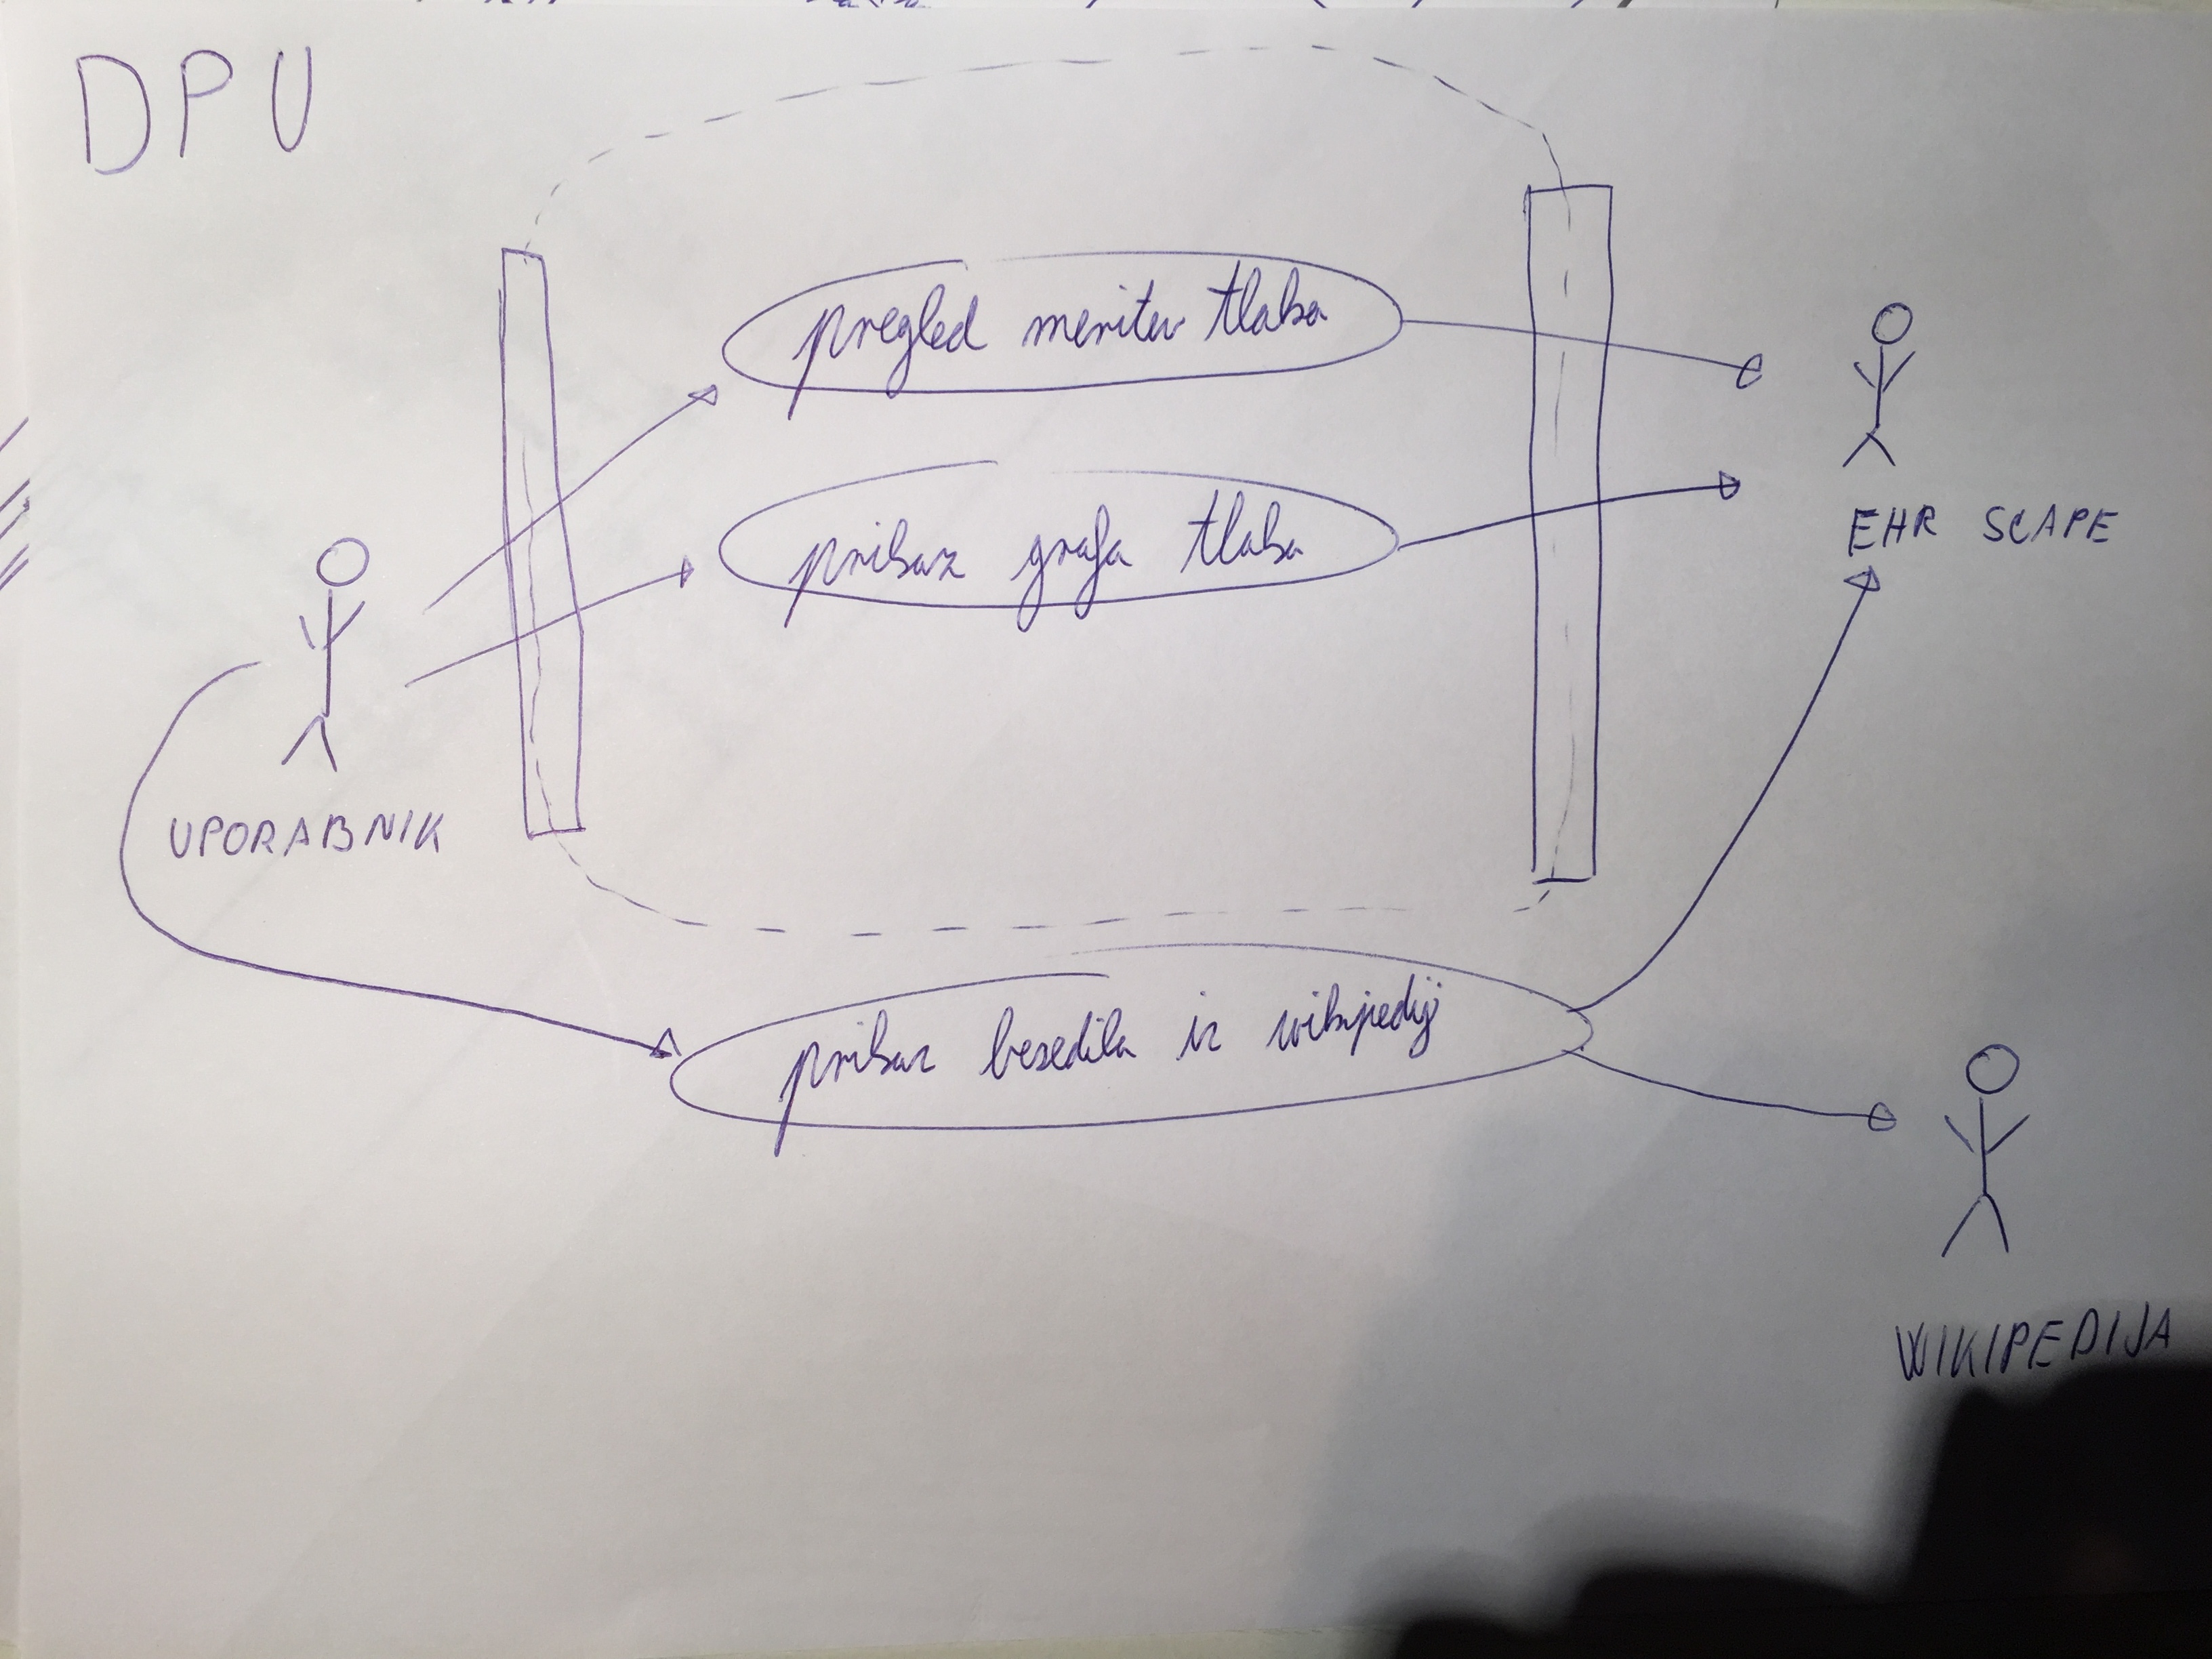 DPU
pregled meritev tlaka
prikaz grafa tlaka
EHR SCAPE
UPORABNIK
prikaz besedila iz wikipedij
WIKIPEDIJA